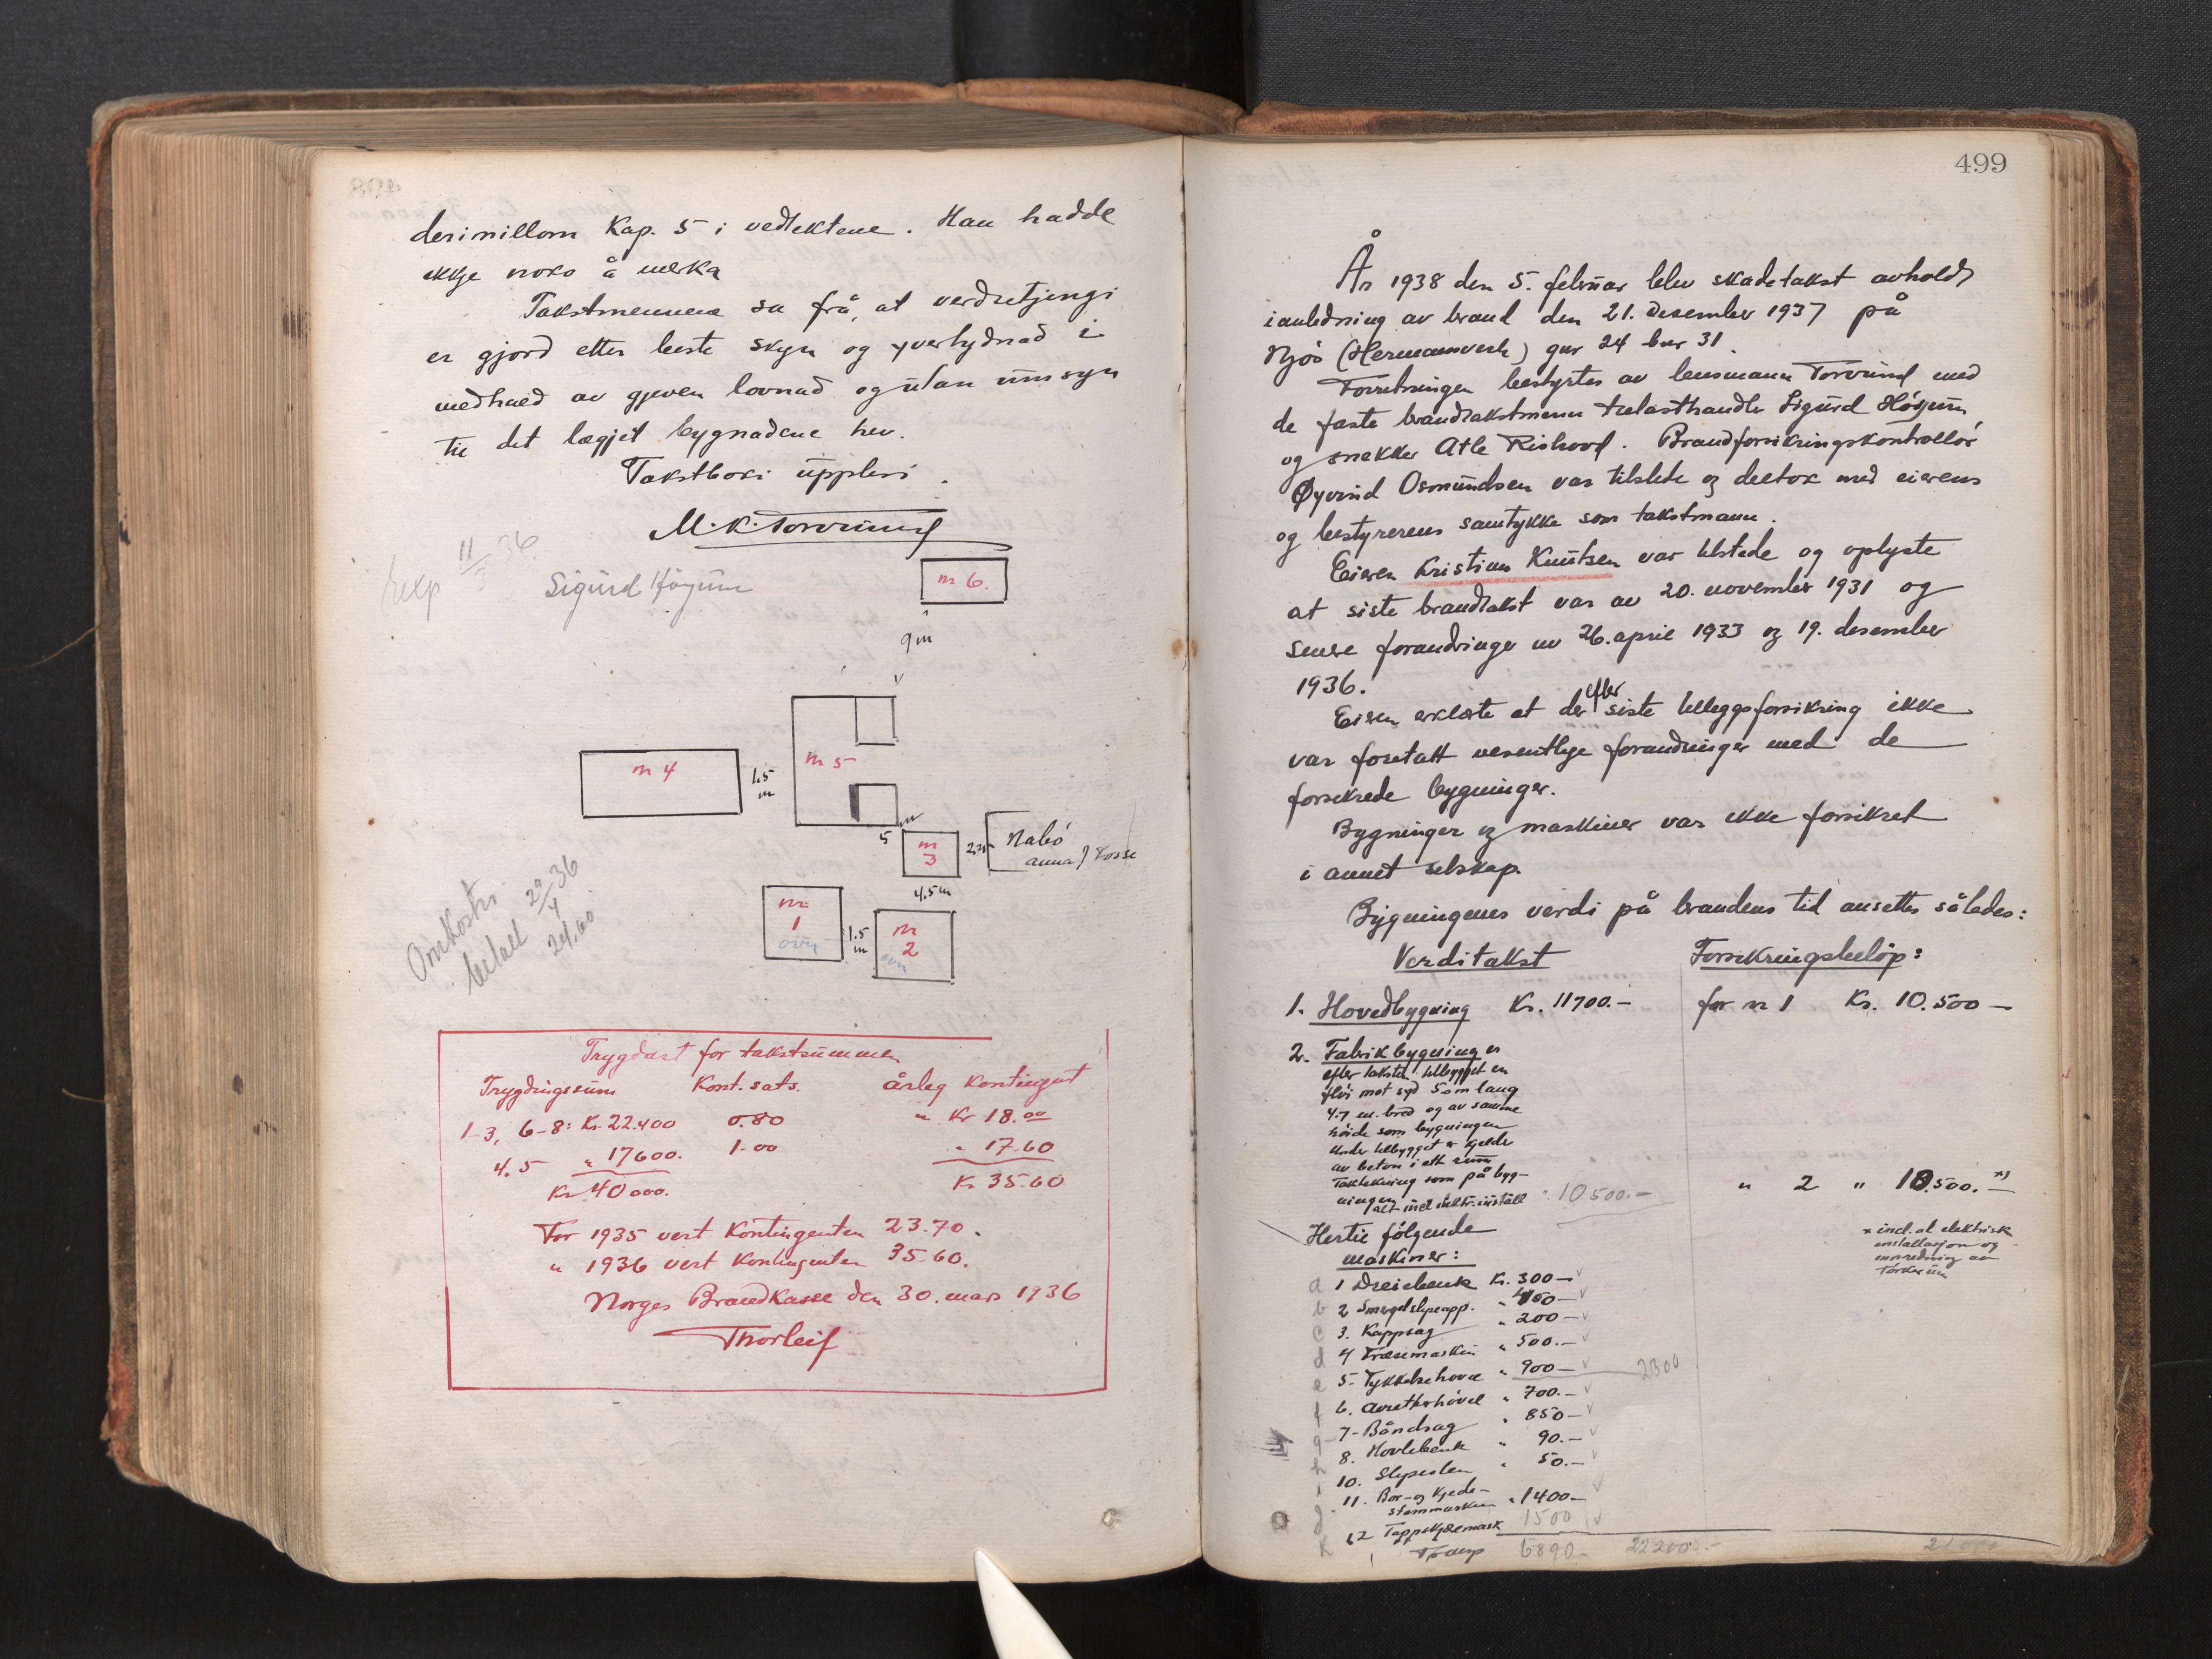 derimillom Kap. 5 i vedtektene. Han hadde
ikkje noko å merka
Takstmennene sa frå, at verdsetjingi
er gjord etter beste skyn og yvertydnad i
medhald av gjeven lovnad og utan umsyn
til det lægjet bygnadene hev.
Takstboki upplesi.
M. K. Torvund
Sigurd Högum
11/3 36
nr 6.
9 m
nr 4
1.5 m
nr 5
5 m
nr 3
2 m
Nabo
4.5 m
nr 1
ovn
1.5 m
nr 2
ovn
Omkostn.
betalt 29/4 36
24.60
Trygdast for takstsummen
Trygdingssum Kont. sats. årleg Kontingent
1-3, 6-8: Kr. 22.400 0.80 " Kr 18.00
4.5 " 17600. 1.00 " 17.60
Kr 40 000. Kr 35.60
For 1935 vert Kontingenten 23.70.
" 1936 vert Kontingenten 35.60.
Norges Brandkasse den 30. mars 1936
Thorleif
499
År 1938 den 5. februar blev skadetakst avholdt
i anledning av brand den 21. desember 1937 på
Njøs (Hermansverk) gnr 24 bnr 31.
Forretningen bestyrtes av lensmann Torvund med
de faste brandtakstmenn trelasthandler Sigurd Högum
og snekker Atle Rishovd. Brandforsikringskontrollör
Øyvind Osmundsen var tilstede og deltok med eierens
og bestyrerens samtykke som takstmann.
Eieren Kristian Knutsen var tilstede og oplyste
at siste brandtakst var av 20. november 1931 og
senere forandringer av 26. april 1933 og 19. desember
1936.
Eieren erklærte at der efter siste tilleggsforsikring ikke
var foretatt vesentlige forandringer med de
forsikrede bygninger.
Bygninger og maskiner var ikke forsikret
i annet selskap.
Bygningenes verdi på brandens tid ansettes således:
Verditakst Forsikringsbelöp:
1. Hovedbygning Kr. 11700.- for nr 1 Kr. 10.500 -
2. Fabrikbygning er
efter taksten tilbygget en
flöi mot syd 5.0 m lang
4.7 m. bred og av samme
höide som bygningen
Under tilbygget er kjelder
av beton i ett rum
Taktekning som på byg-
ningen alt incl elektr. install " 10500.- " 2 " 10.500.- x)
Hertil følgende
maskiner:
x incl. al elektrisk
installasjon og
innredning av
törkerum
a 1 Dreiebenk Kr. 300 -
b 2 Smergelslipeapp. " 400 -
c 3. Kappsag " 200 -
d 4 Fræsemaskin " 500.-
e 5. Tykkelsehövel " 900 - 2300
f 6. Avretterhövel " 700.-
g 7. Båndsag " 850 -
h 8. Hovlebenk " 90.-
i 10. Slipesten " 50.-
j 11. Bor- og Kjede-
stemmaskin " 1400 -
k 12 Tappskjæremask 1500
Transp 6890 - 22200.-